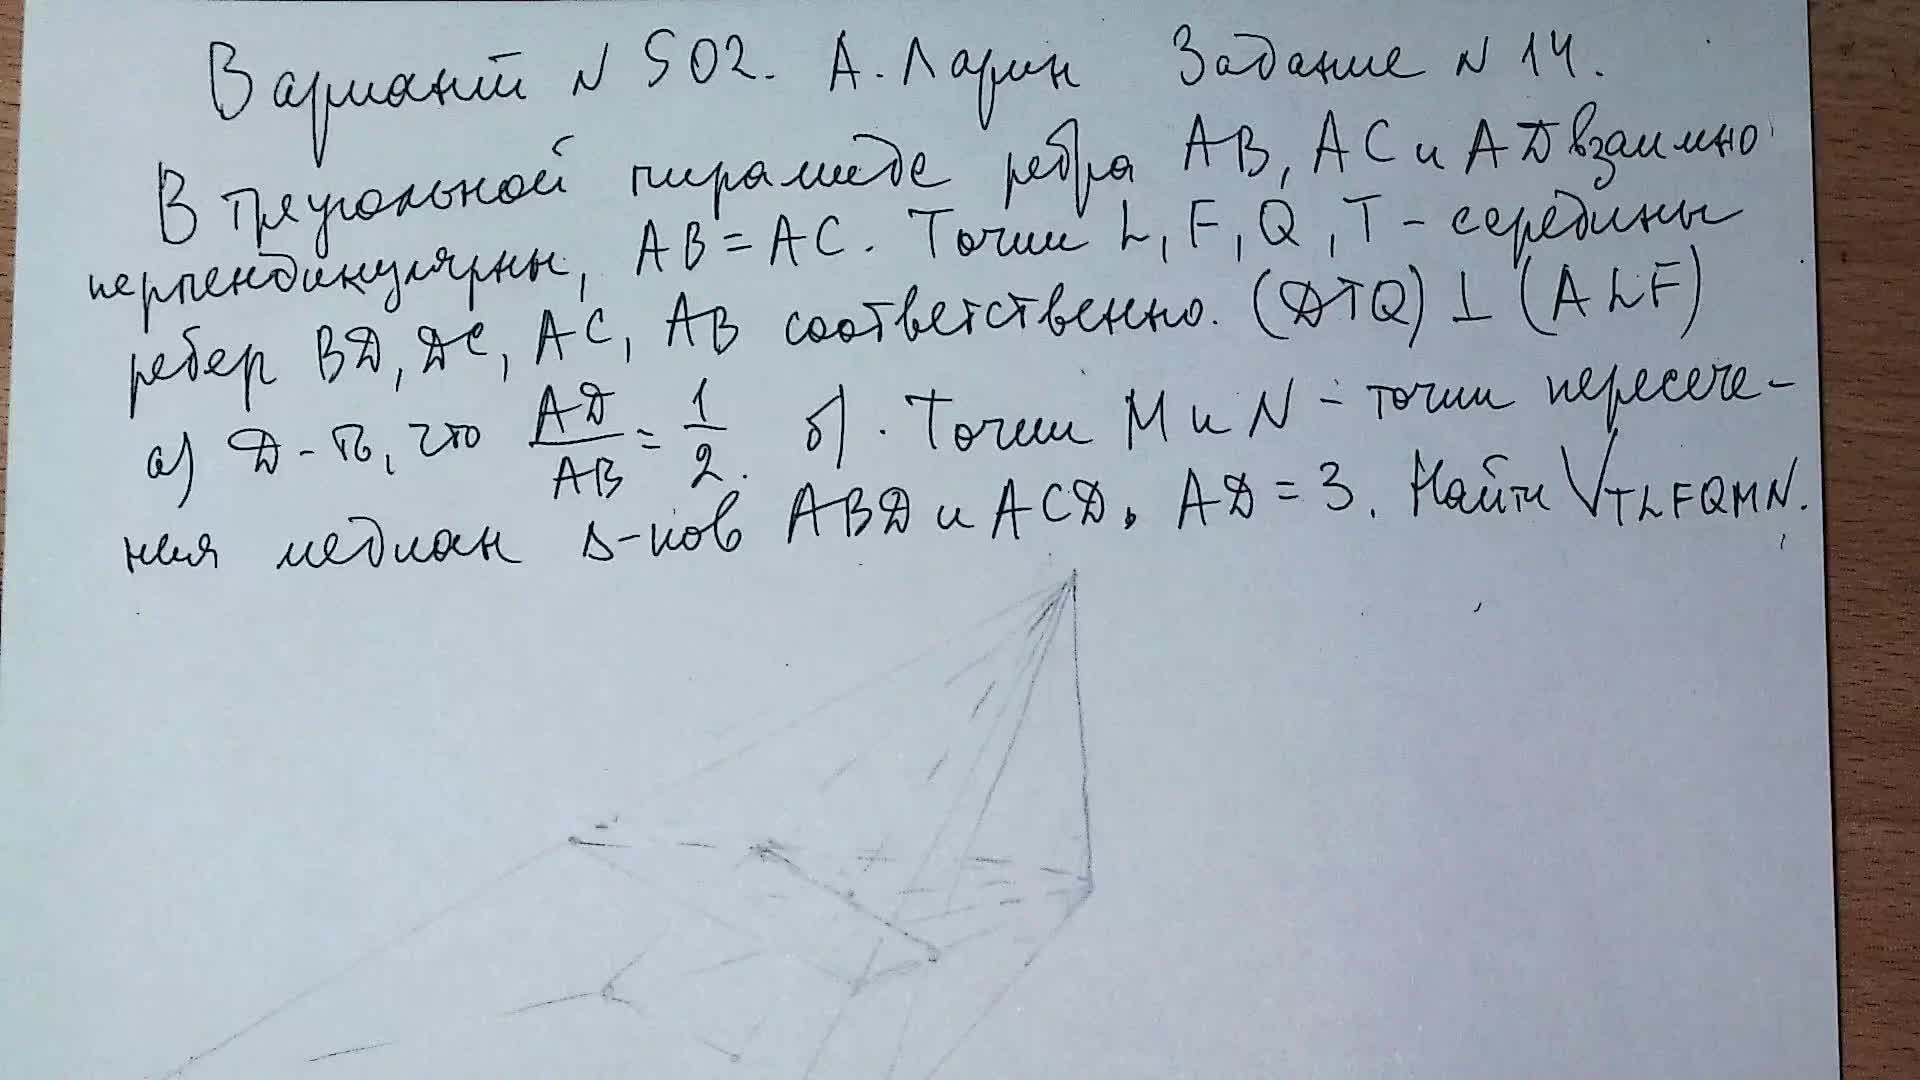 Вариант N 502. А. Ларин Задание N 14.
В треугольной пирамиде ребра AB, AC и AD взаимно
перпендикулярны, AB = AC. Точки L, F, Q, T - середины
ребер BD, DC, AC, AB соответственно. (DTQ) ⊥ (ALF)
а) Д-ть, что AD/AB = 1/2. б). Точки M и N - точки пересече-
ния медиан Δ-ков ABD и ACD, AD = 3. Найти V TLFQMN.